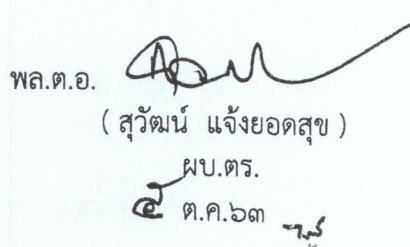 พล.ต.อ.
( สุวัฒน์ แจ้งยอดสุข )
ผบ.ตร.
ต.ค.๖๓